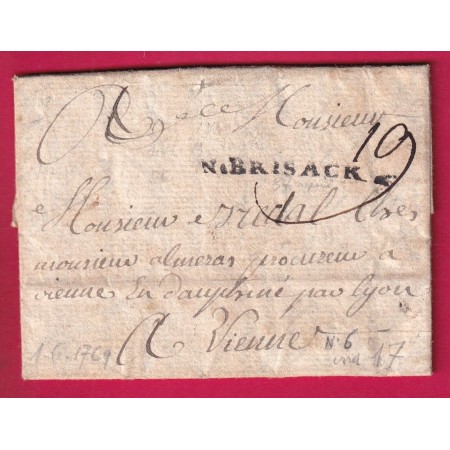 Monsieur
19
N.BRISACK
Monsieur vidal Ches
monsieur almeras procureur a
vienne En dauphiné par lyon
A Vienne
1.6.1769
N°6
ind 17